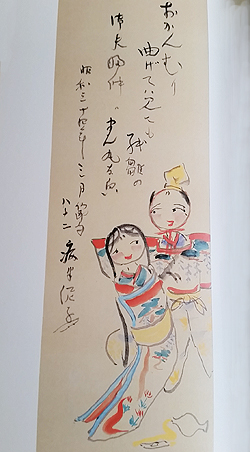 おかんむり
曲げてハ見ても
紙雛の
御夫婦仲ハ まん丸
昭和三十四年三月節句
八十二